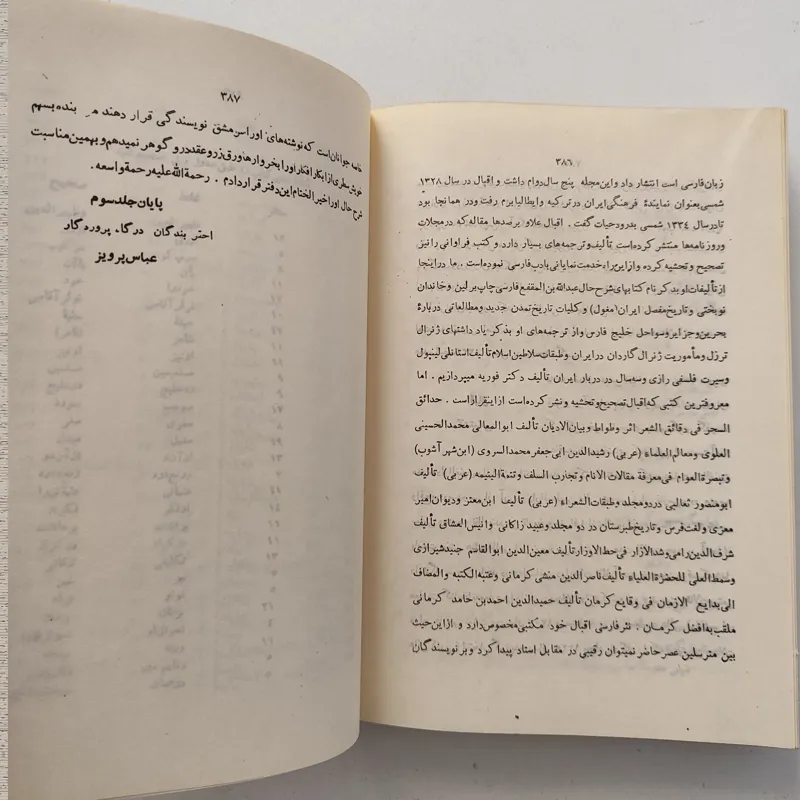 ۳۸۶
زبان فارسی است انتشار داد و این مجله پنج سال دوام داشت و اقبال در سال ۱۳۲۸
شمسی بعنوان نمایندهٔ فرهنگی ایران در ترکیه و ایطالیا برم رفت و در همانجا بود
تا در سال ۱۳۳٤ شمسی بدرود حیات گفت . اقبال علاو برصدها مقاله که در مجلات
و روزنامه‌ها منتشر کرده است تألیف و ترجمه‌های بسیار دارد و کتب فراوانی را نیز
تصحیح و تحشیه کرده و از این راه خدمت نمایانی بادب فارسی نموده است . ما در اینجا
از تألیفات او بذکر نام کتابهای شرح حال عبدالله بن المقفع فارسی چاپ برلین و خاندان
نوبختی و تاریخ مفصل ایران (مغول) و کلیات تاریخ تمدن جدید و مطالعاتی دربارهٔ
بحرین و جزایر و سواحل خلیج فارس و از ترجمه‌های او بذکر یاد داشتهای ژنرال
ترزل و مأموریت ژنرال گاردان در ایران و طبقات سلاطین اسلام تألیف استانلی لینپول
و سیرت فلسفی رازی و سه سال در دربار ایران تألیف دکتر فوریه میپردازیم . اما
معروفترین کتبی که اقبال تصحیح و تحشیه و نشر کرده است از اینقرار است . حدائق
السحر فی دقائق الشعر اثر وطواط و بیان الادیان تألیف ابوالمعالی محمد الحسینی
العلوی و معالم العلماء (عربی) رشیدالدین ابی جعفر محمد السروی (ابن شهر آشوب)
و تبصرة العوام فی معرفة مقالات الانام و تجارب السلف و تتمة الیتیمه (عربی) تألیف
ابو منصور ثعالبی در دو مجلد و طبقات الشعراء (عربی) تألیف ابن معتز و دیوان امیر
معزی و لغت فرس و تاریخ طبرستان در دو مجلد و عبید زاکانی و انیس العشاق تألیف
شرف الدین رامی و شد الازار فی حط الاوزار تألیف معین الدین ابوالقاسم جنید شیرازی
و سمط العلی للحضرة العلیاء تألیف ناصرالدین منشی کرمانی و عتبه الکتبه و المضاف
الی بدایع الازمان فی وقایع کرمان تألیف حمیدالدین احمد بن حامد کرمانی
ملقب به افضل کرمان . نثر فارسی اقبال خود مکتبی مخصوص دارد و از این حیث
بین مترسلین عصر حاضر نمیتوان رقیبی در مقابل استاد پیدا کرد و بر نویسندگان
۳۸۷
خاصه جوانان است که نوشته‌های او را سر مشق نویسندگی قرار دهند من بنده بسهم
خویش سطری از ابکار افکار او را بخروارها ورق زر و عقد در و گوهر نمیدهم و بهمین مناسبت
شرح حال او را خیر الختام این دفتر قرار دادم . رحمة الله علیه رحمة واسعه .
پایان جلد سوم
احقر بندگان درگاه پروردگار
عباس پرویز